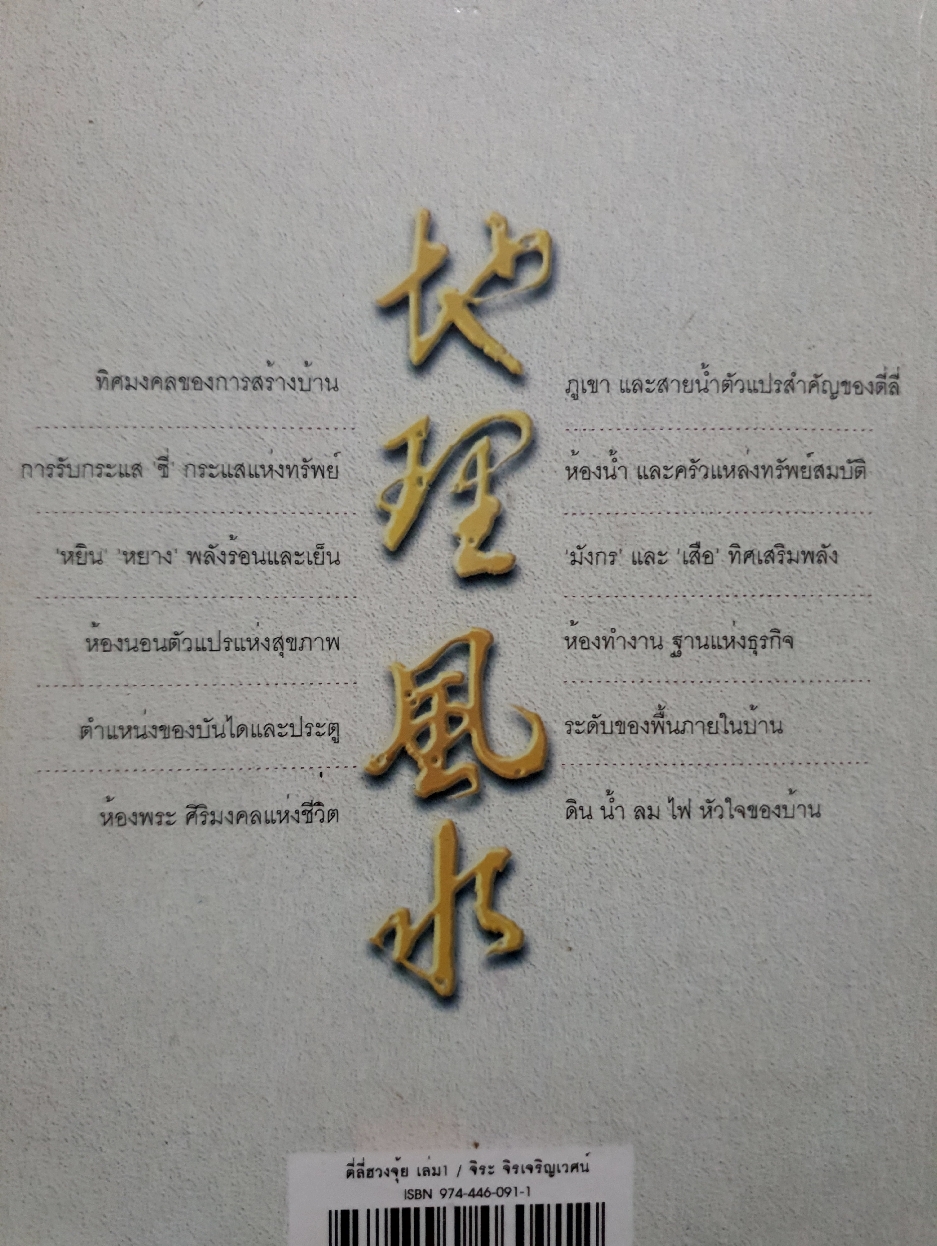 地理風水
ทิศมงคลของการสร้างบ้าน
การรับกระแส 'ชี่' กระแสแห่งทรัพย์
'หยิน' 'หยาง' พลังร้อนและเย็น
ห้องนอนตัวแปรแห่งสุขภาพ
ตำแหน่งของบันไดและประตู
ห้องพระ ศิริมงคลแห่งชีวิต
ภูเขา และสายน้ำตัวแปรสำคัญของตี่ลี่
ห้องน้ำ และครัวแหล่งทรัพย์สมบัติ
'มังกร' และ 'เสือ' ทิศเสริมพลัง
ห้องทำงาน ฐานแห่งธุรกิจ
ระดับของพื้นภายในบ้าน
ดิน น้ำ ลม ไฟ หัวใจของบ้าน
ตี่ลี่ฮวงจุ้ย เล่ม1 / จิระ จิรเจริญเวศน์
ISBN 974-446-091-1